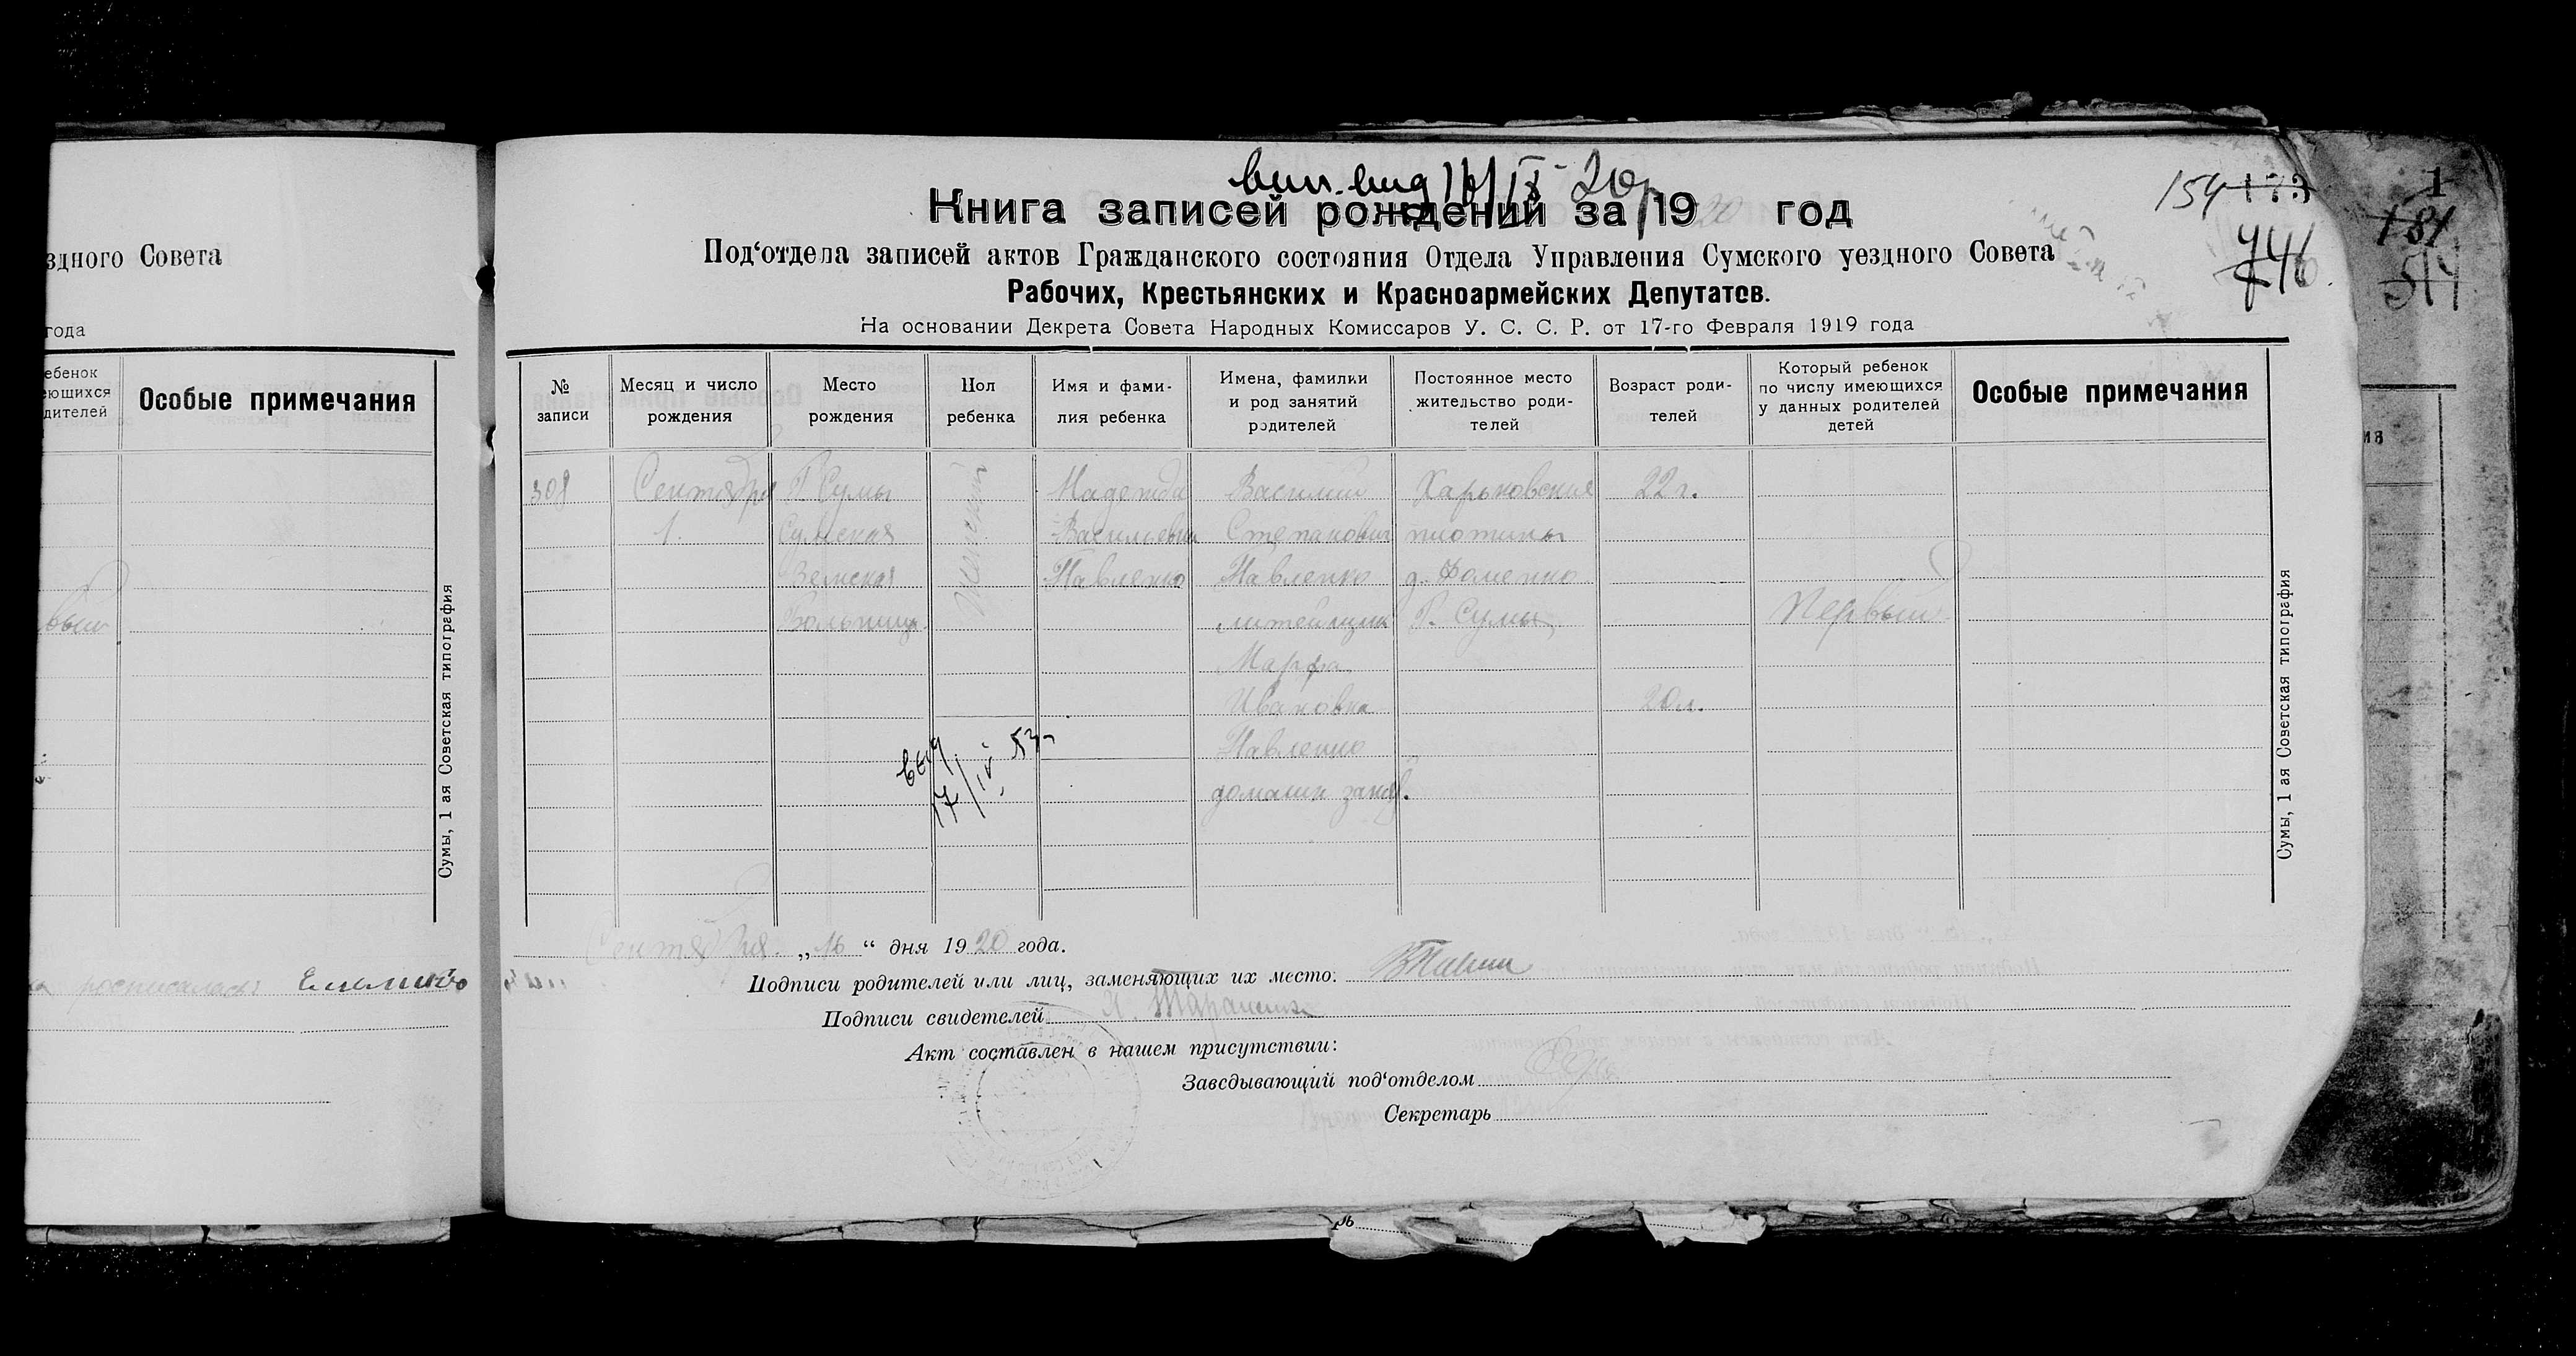 здного Совета
года
ебенок
еющихся
дителей
Особые примечания
вый
росписалась:
Сумы, 1 ая Советская типография
16/IX-20
Книга записей рождений за 1920 год
Под‘отдела записей актов Гражданского состояния Отдела Управления Сумского уездного Совета
Рабочих, Крестьянских и Красноармейских Депутатов.
На основании Декрета Совета Народных Комиссаров У. С. С. Р. от 17-го Февраля 1919 года
154 173
746
1
181
514
№ записи
Месяц и число рождения
Место рождения
Пол ребенка
Имя и фами-
лия ребенка
Имена, фамилии
и род занятий
родителей
Постоянное место
жительство роди-
телей
Возраст роди-
телей
Который ребенок
по числу имеющихся
у данных родителей
детей
Особые примечания
308
Сентября
1.
Г. Сумы
Сумская
Земская
Больница
Женский
Надежда
Васильевна
Павленко
Василий
Степанович
Павленко
литейщик
Марфа
Ивановна
Павленко
домашн. занят.
Харьковская
плотины
д. Фоменко
Г. Сумы
22 г.
20 л.
Первый
17/IV 53
Сентября „16“ дня 1920 года.
Подписи родителей или лиц, заменяющих их место:
Подписи свидетелей
Акт составлен в нашем присутствии:
Заведывающий под‘отделом
Секретарь
Сумы, 1 ая Советская типография
ия